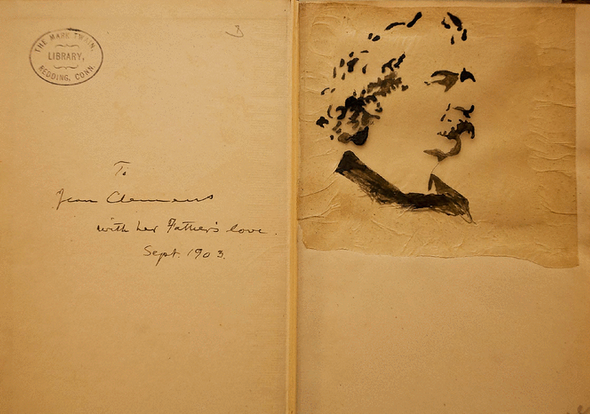 THE MARK TWAIN
LIBRARY,
REDDING, CONN.
To
Jean Clemens
with her Father's love.
Sept. 1903.